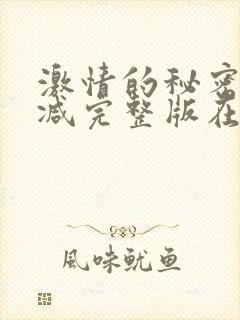 激情的秘密
减完整版在
風味魷鱼